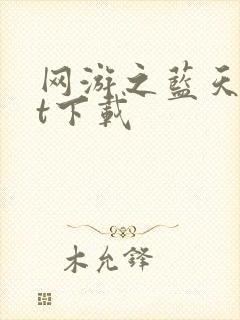 网游之蓝天
t下载
木允锋